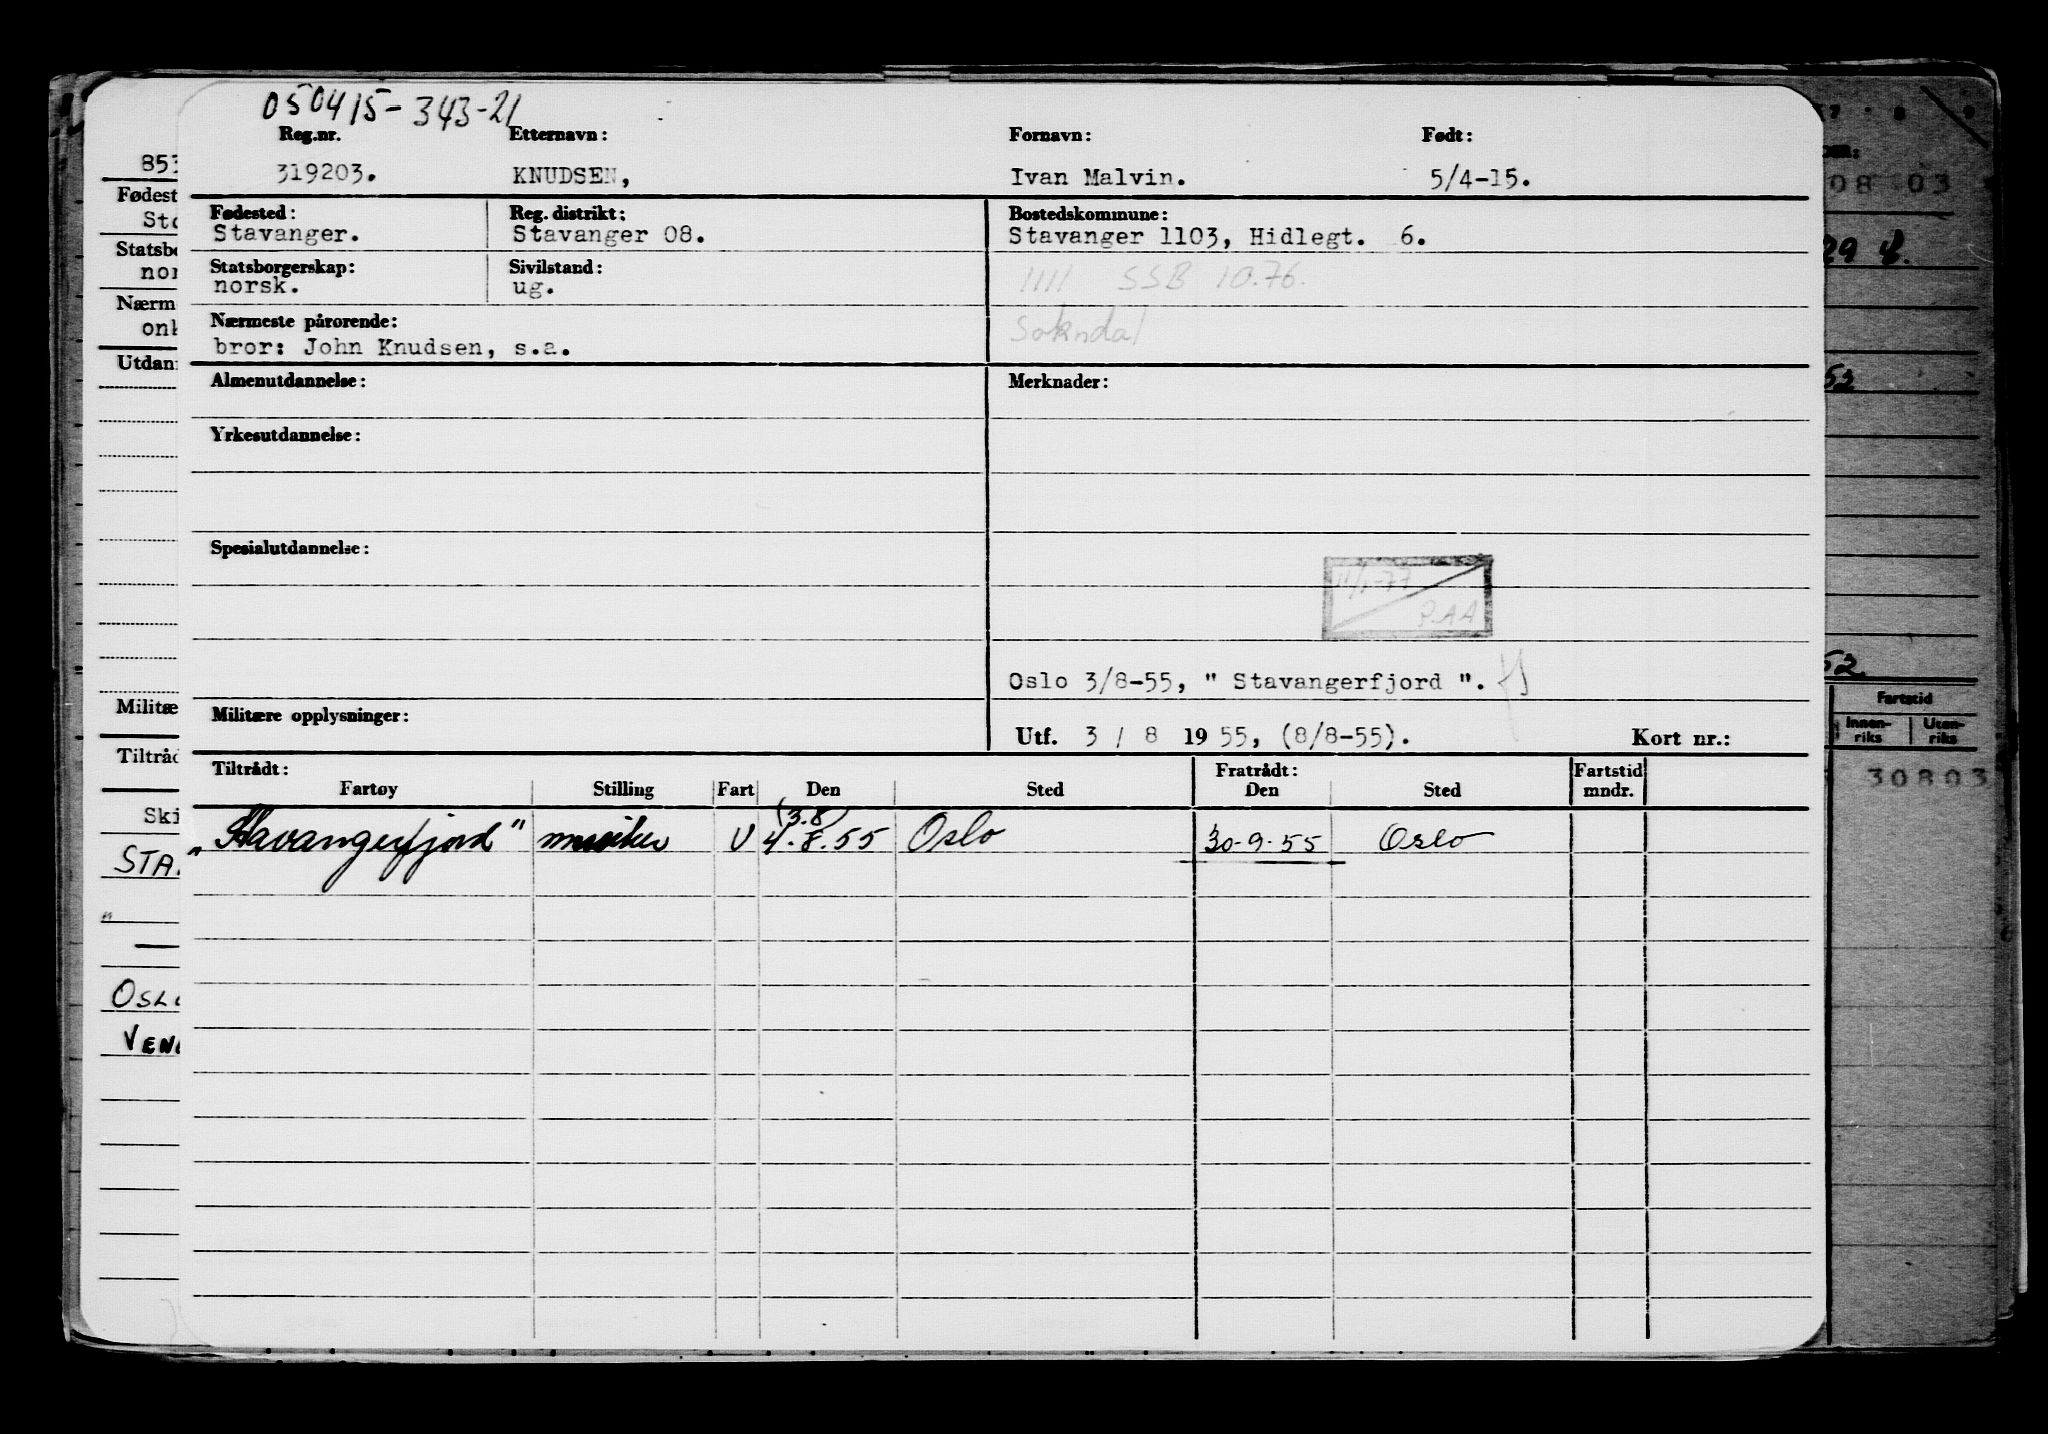 050415-343-21
Reg.nr. Etternavn: Fornavn: Født:
319203. KNUDSEN, Ivan Malvin. 5/4-15.
Fødested: Reg. distrikt: Bostedskommune:
Stavanger. Stavanger 08. Stavanger 1103, Hidlegt. 6.
Statsborgerskap: Sivilstand:
norsk. ug. 1111 SSB 10.76.
Nærmeste pårørende: Sokndal
bror: John Knudsen, s.a.
Almenutdannelse: Merknader:
Yrkesutdannelse:
Spesialutdannelse:
11/1-77
P.AA
Oslo 3/8-55, " Stavangerfjord ".
Militære opplysninger:
Utf. 3 / 8 1955, (8/8-55). Kort nr.:
Tiltrådt: Fratrådt: Fartstid
Fartøy Stilling Fart Den Sted Den Sted mndr.
(3.8)
"Stavangerfjord" musiker U 4.8.55 Oslo 30-9-55 Oslo
853
Fødest
Sta
Statsbo
nor
Nærm
onk
Utdan
Militæ
Tiltråd
Ski
STA
"
OSLO
VEN
08 03
29 8.
53
52
Fartstid
Innen-riks Uten-riks
30803